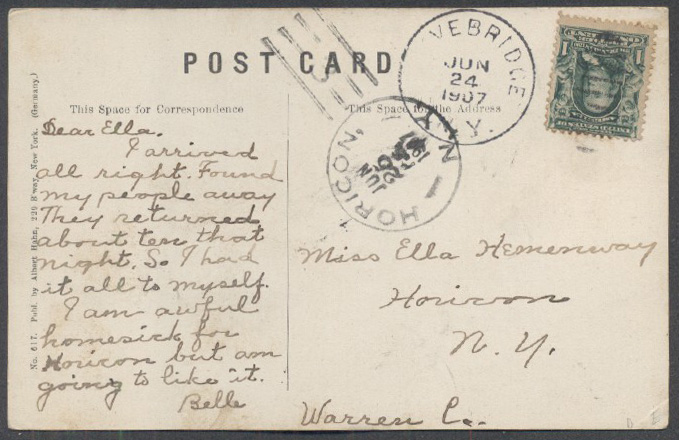 POST CARD
VEBRIDGE
JUN
24
1907
Y.
This Space for Correspondence
This Space for the Address
HORICON, N.Y.
JUN
1
1
Dear Ella.
I arrived
all right. Found
my people away
They returned
about ten that
night. So I had
it all to myself.
I am awful
homesick for
Horicon but am
going to like it.
Belle
Miss Ella Hemenway
Horicon
N. Y.
Warren Co.
No. 617. Publ. by Albert Hahn, 229 B'way, New York. (Germany.)